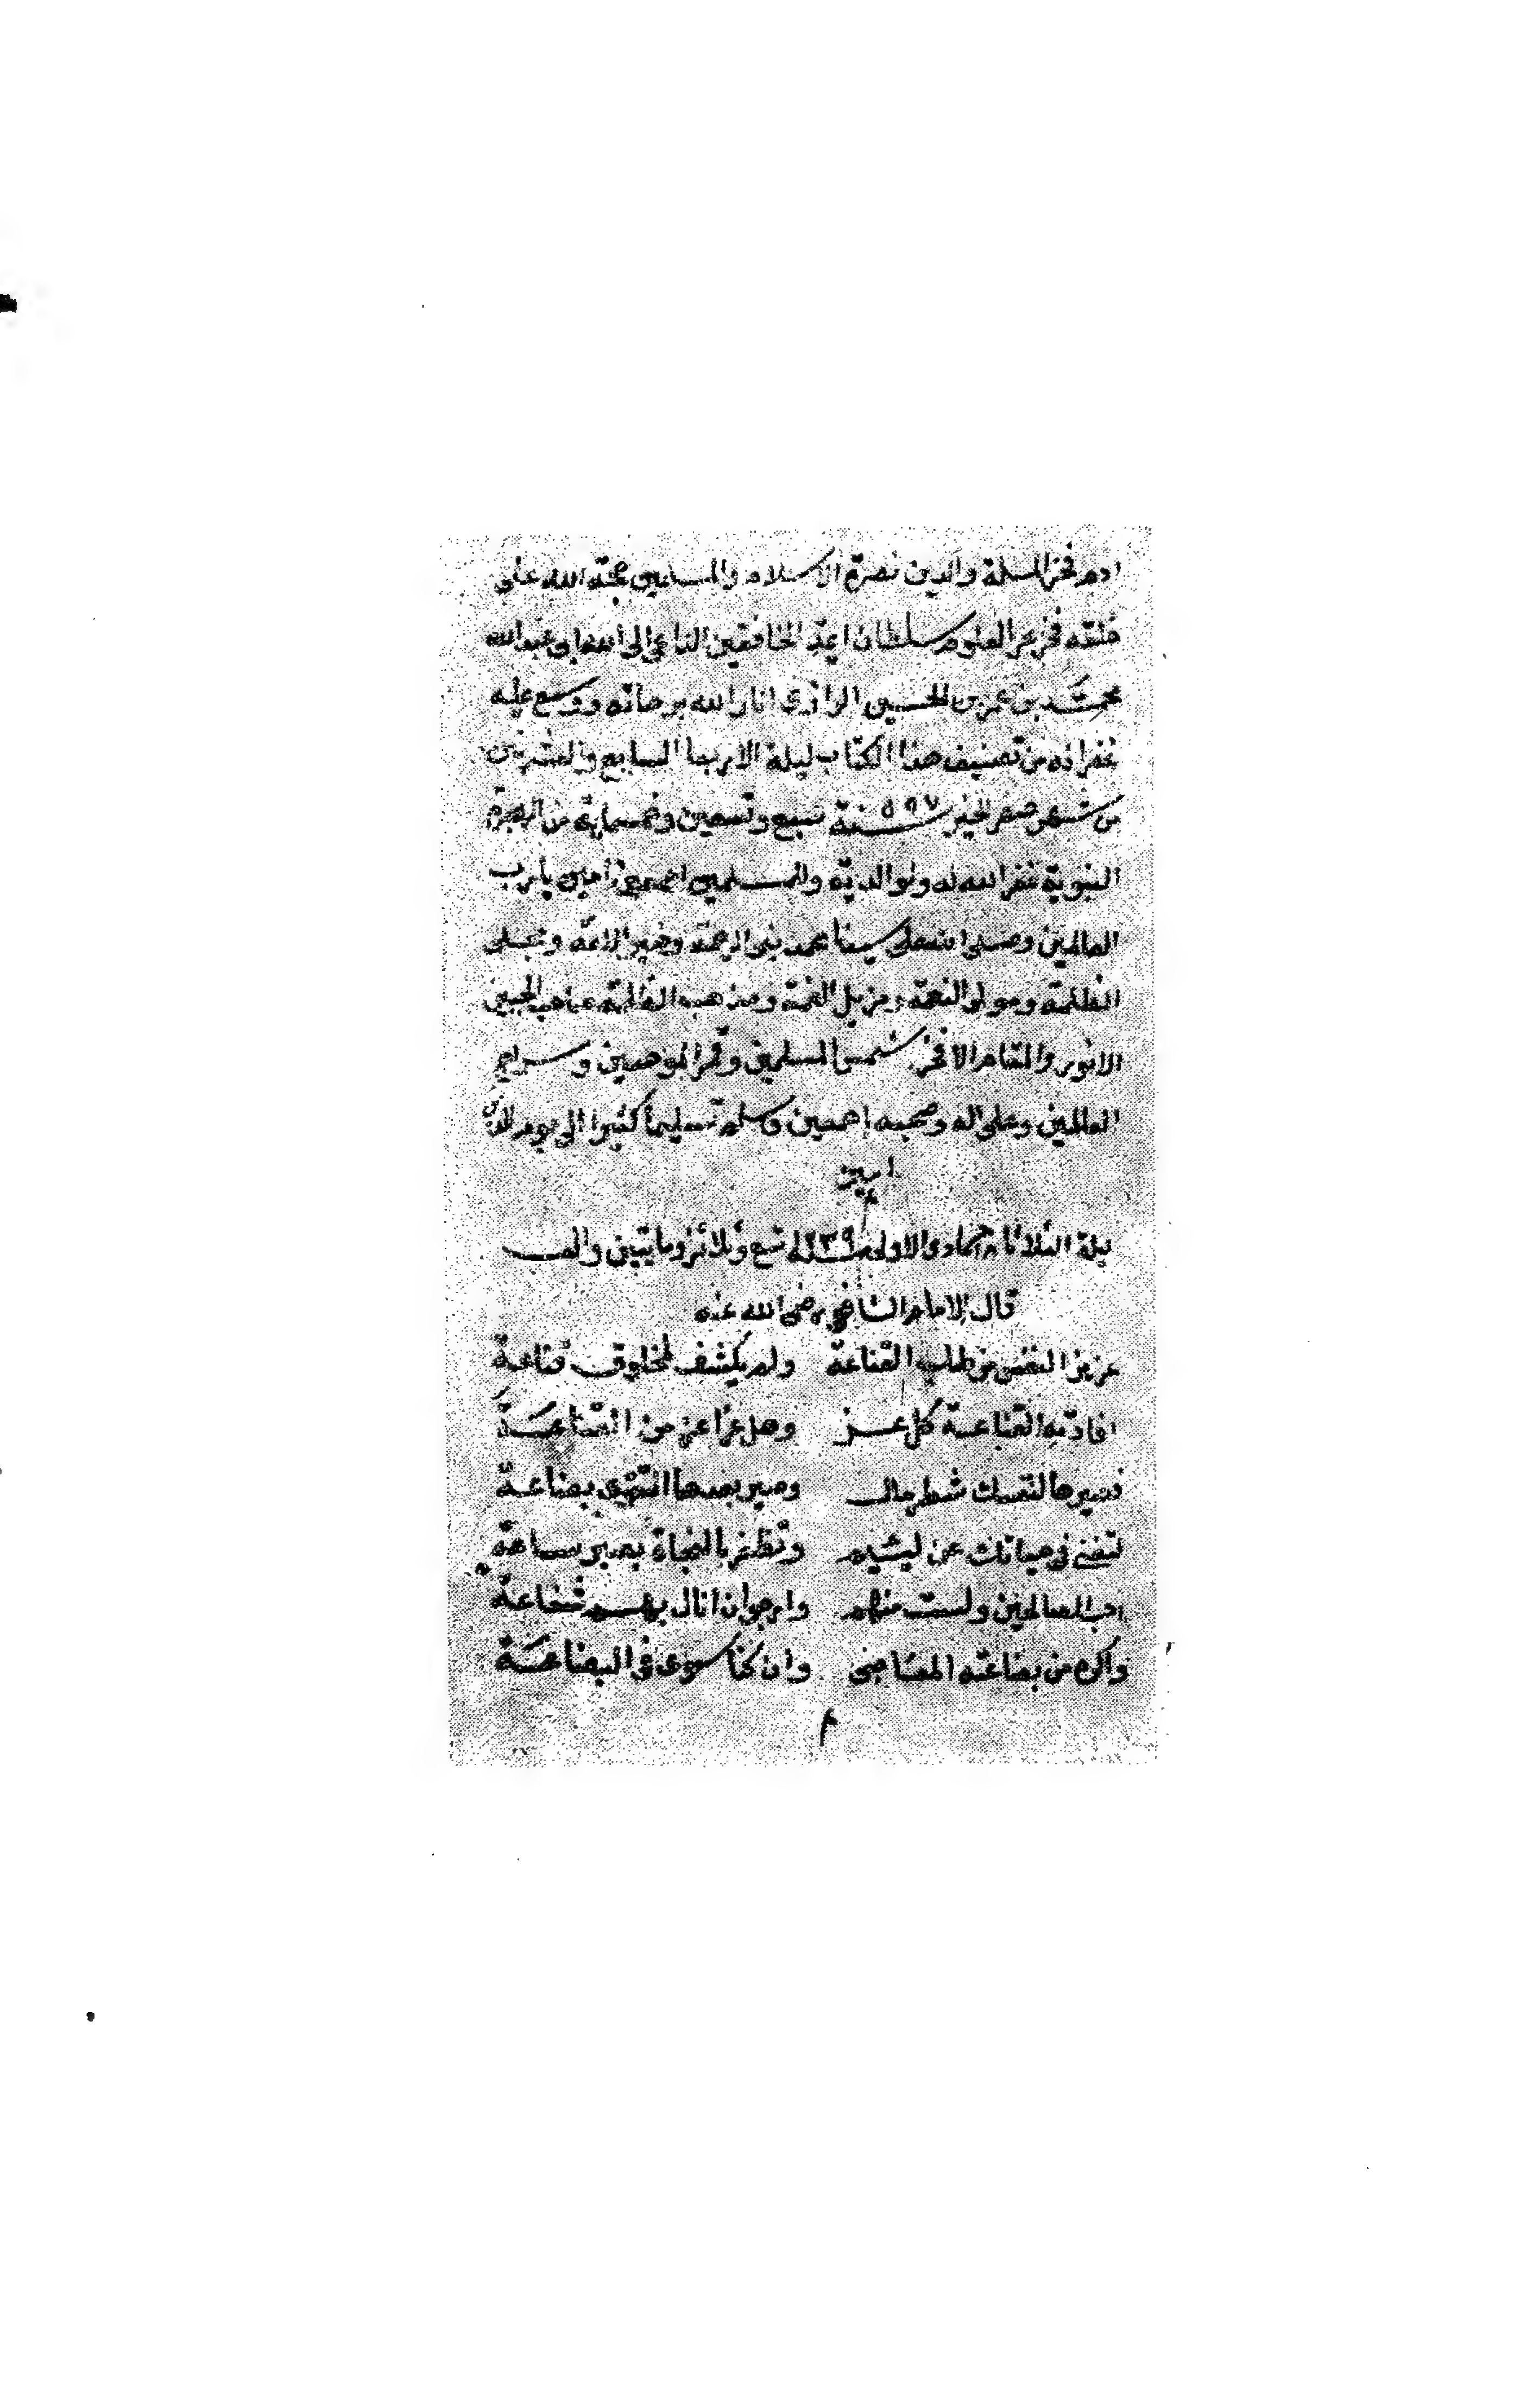 ادم فخر الملة والدين نصرة الاسلام والمسلمين حجة الله على
خلقه فخر بحر العلوم سلطان ايمة الخافقين الداعي الى الله ابى عبد الله
محمد بن عمر بن الحسين الرازي انار الله برهانه ووسع عليه
غفرانه من تصنيف هذا الكتاب ليلة الاربعا السابع والعشرين
من شهر صفر الخير سنة ٥٩٧ سبع وتسعين وخمسماية من الهجرة
النبوية غفر الله له ولوالديه والمسلمين اجمعين امين يا رب
العالمين وصلى الله على سيدنا محمد نبى الرحمة وخير الامة ومجلى
الظلمة ومولى النعمة ومزيل الغمة ومذهب الظلمة صاحب الجبين
الانور والمقام الافخر شمس المسلمين وقمر الموحدين وسراج
العالمين وعلى اله وصحبه اجمعين وسلم تسليما كثيرا الى يوم الدين
امين
ليلة الثلاثا جمادى الاولى سنة ١٢٣٩ تسع وثلاثين ومايتين والف
قال الامام الشافعي رضى الله عنه
عزيز النفس من طلب القناعة ولم يكشف لمخلوق قناعة
افادته القناعة كل عز وهل عز اعز من القناعة
فصيرها لنفسك شطر مال وصير بعدها التقوى بضاعة
لتغنى في حياتك عن لئيم وتظفر بالنجاة بصبر ساعة
احب الصالحين ولست منهم وارجو ان انال بهم شفاعة
واكره من بضاعته المعاصى وان كنا سوى في البضاعة
م